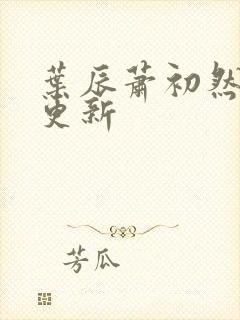 葉辰蕭初然
更新
芳瓜